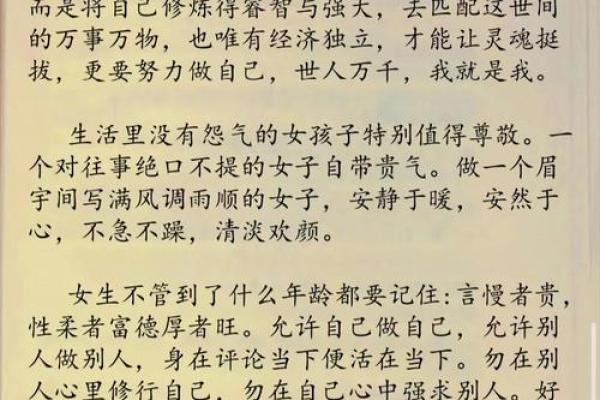 而是将自己修炼得睿智与强大，去匹配这世间
的万事万物，也唯有经济独立，才能让灵魂挺
拔，更要努力做自己，世人万千，我就是我。
生活里没有怨气的女孩子特别值得尊敬。一
个对往事绝口不提的女子自带贵气。做一个眉
宇间写满风调雨顺的女子，安静于暖，安然于
心，不急不躁，清淡欢颜。
女生不管到了什么年龄都要记住:言慢者贵，
性柔者富德厚者旺。允许自己做自己，允许别
人做别人，身在评论当下便活在当下。勿在别
人心里修行自己，勿在自己心中强求别人。好